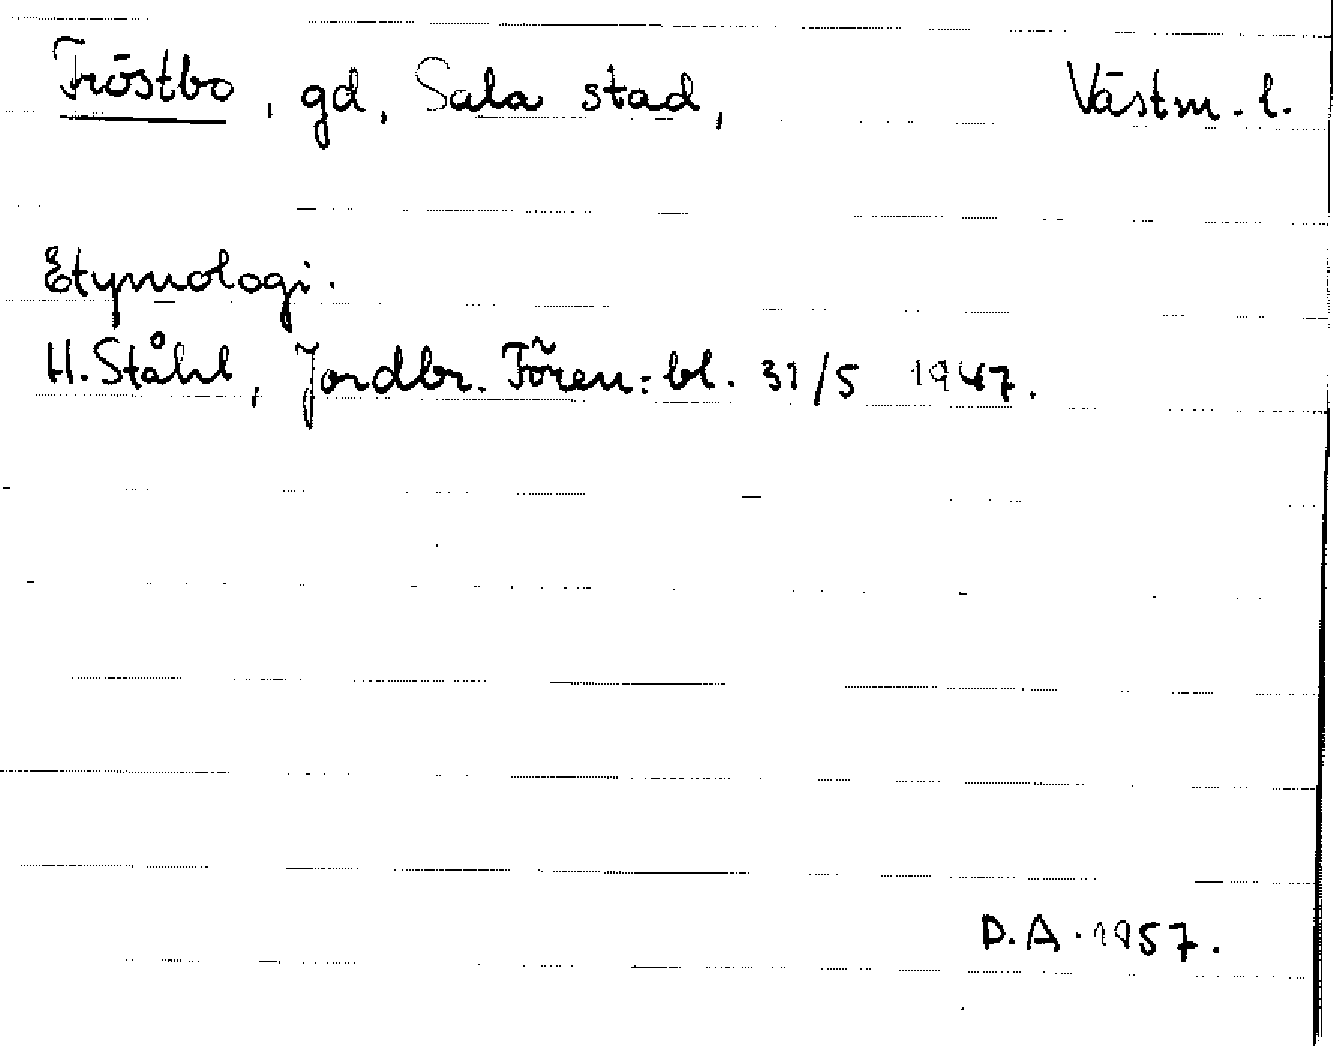 Fröstbo, gd, Sala stad, Västm. l.
Etymologi.
H. Ståhl, Jordbr. Fören:bl. 31/5 1947.
D.A. 1957.